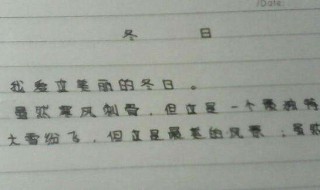 Date:
冬 日
我爱这美丽的冬日。
虽然寒风刺骨,但这是一个最独特
大雪纷飞,但这是最美的风景,虽然